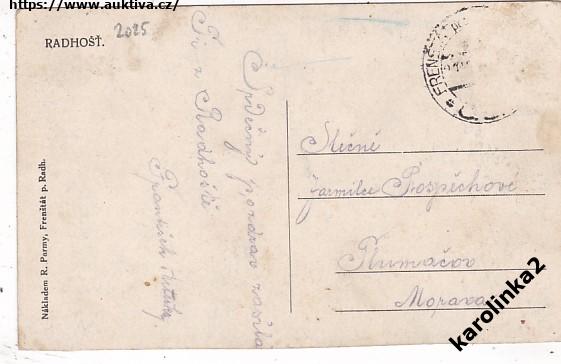 https://www.auktiva.cz/
RADHOŠŤ.
2025
Srdečný pozdrav zasílá
Ti z Radhoště
František
Nákladem R. Parmy, Frenštát p. Radh.
FRENŠ
Slečně
Jarmilce Pospěchové
Tlumačov
Morava
karolinka2